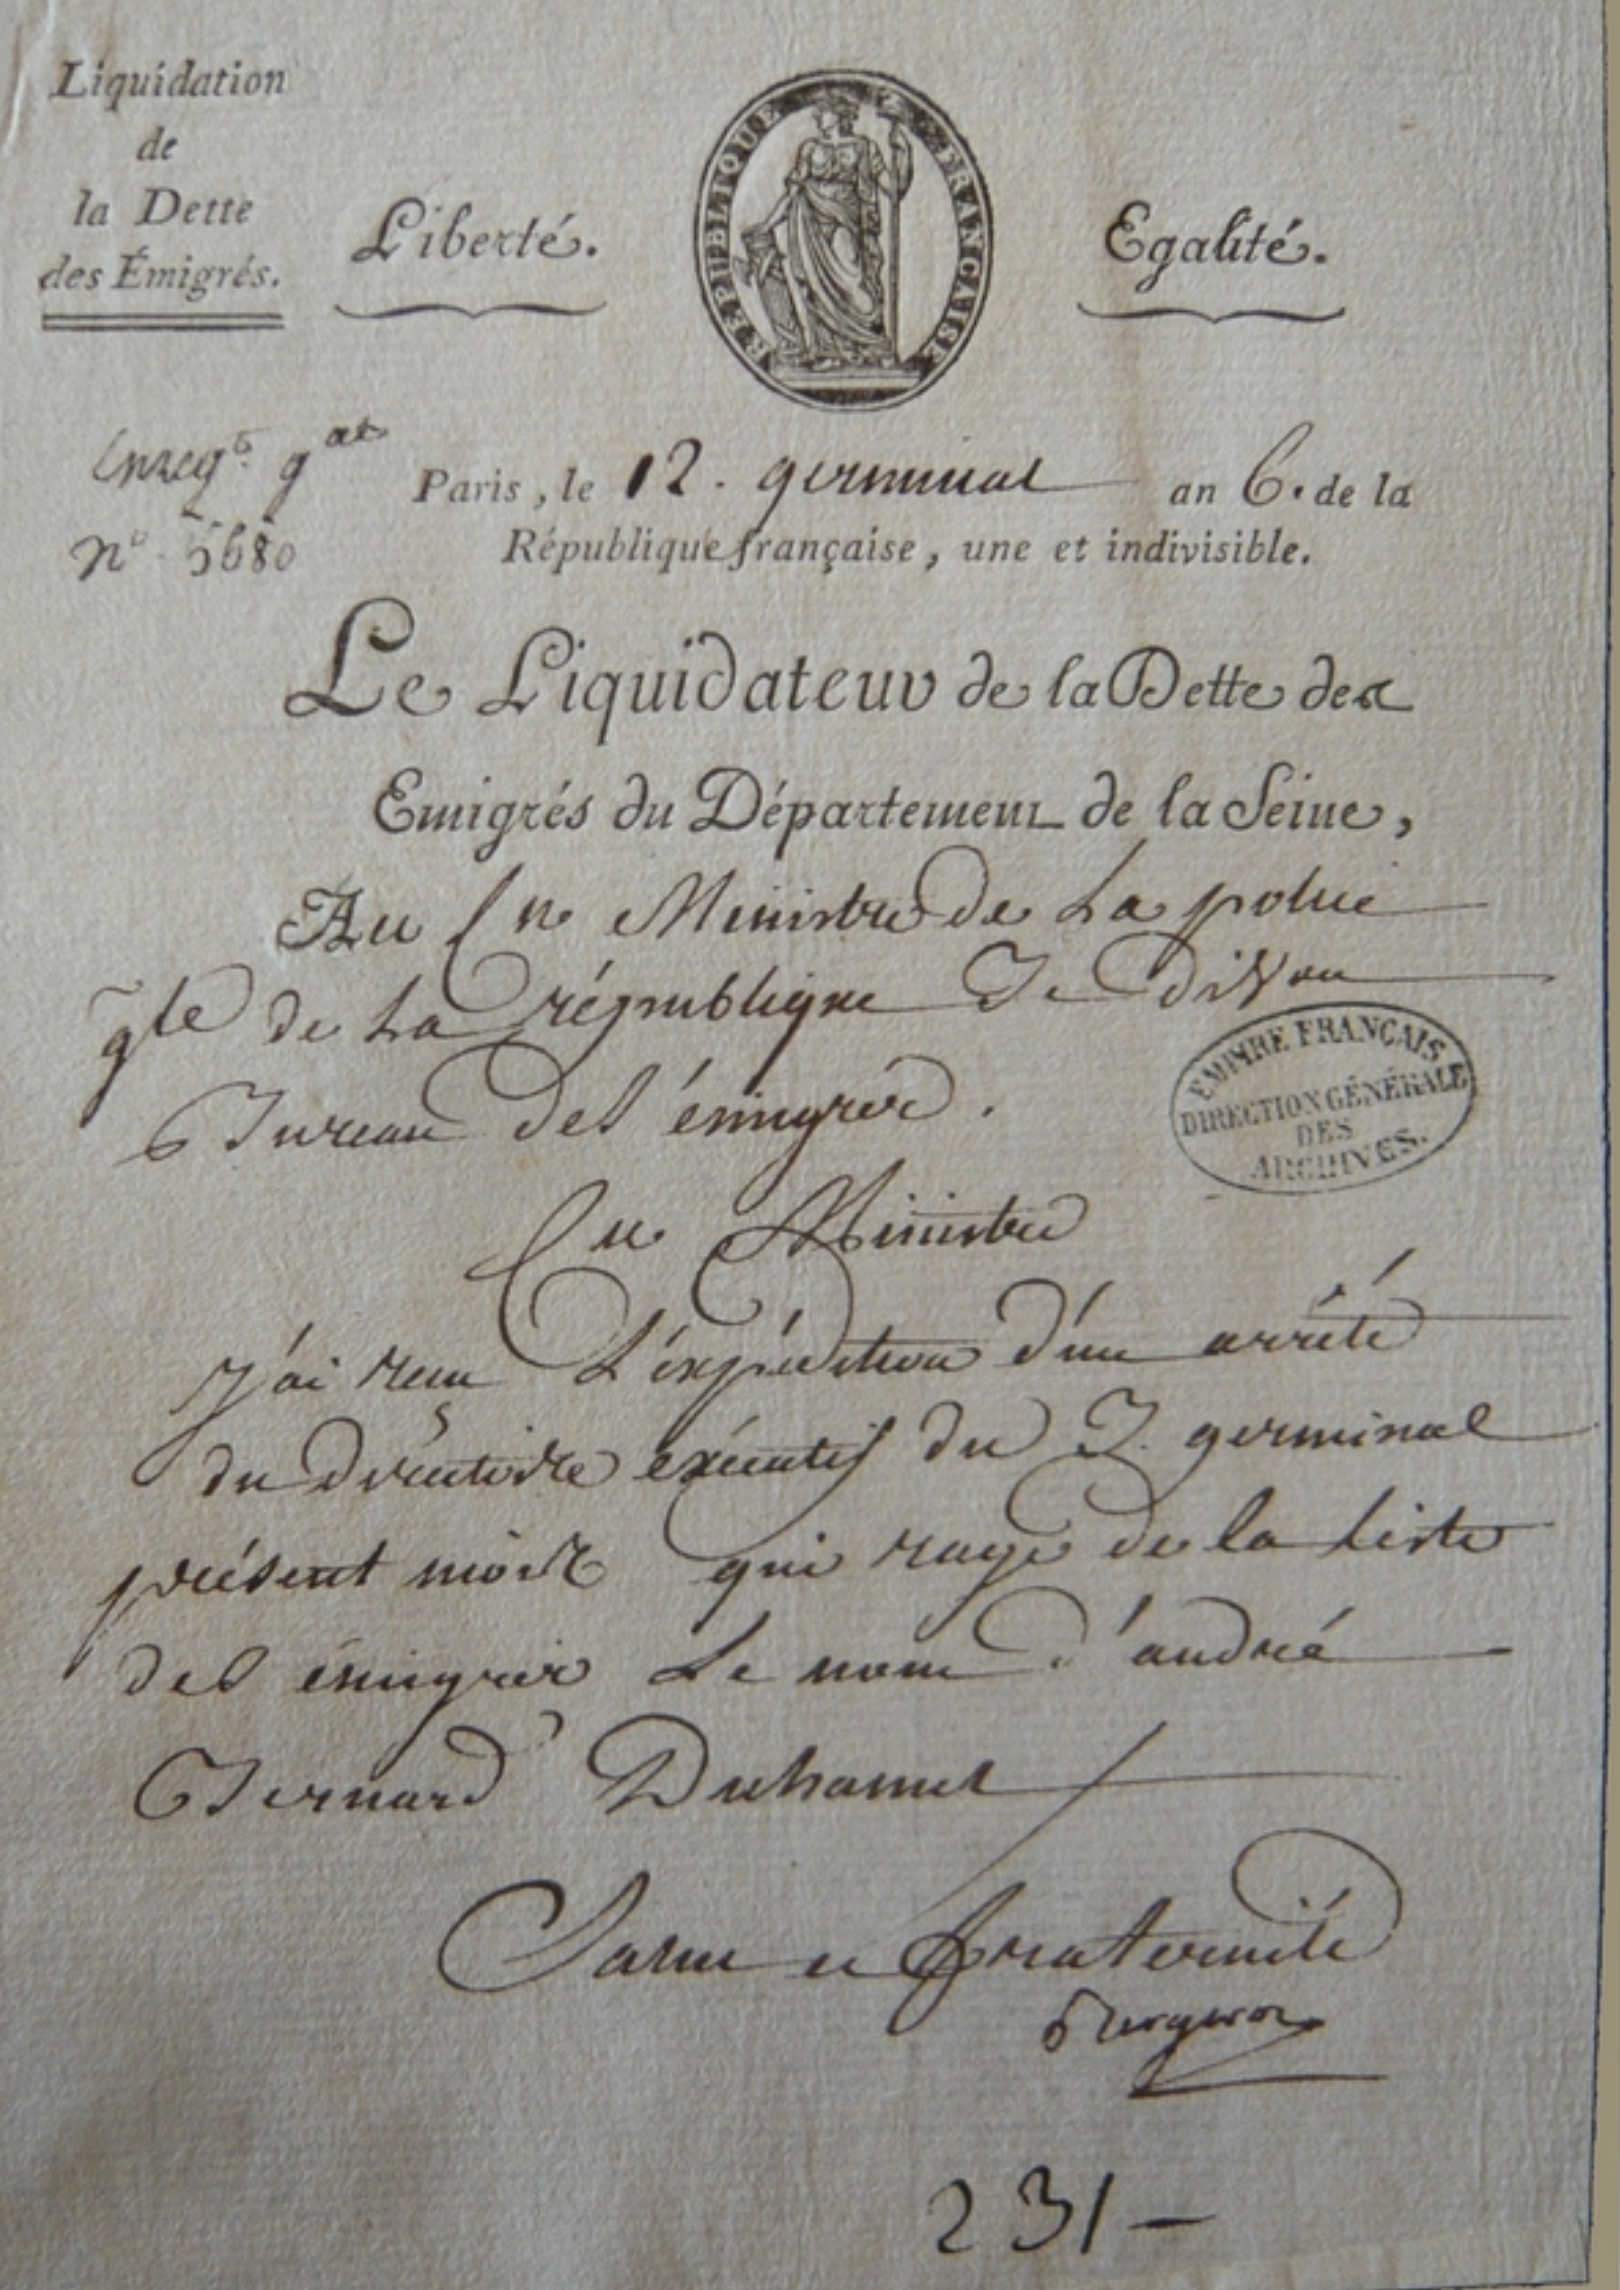 Liquidation
de
la Dette
des Émigrés.
Liberté.
RÉPUBLIQUE FRANÇAISE
Egalité.
Enreg. gal
n° 5680
Paris, le 12. germinal an 6. de la
République française, une et indivisible.
Le Liquidateur de la Dette des
Emigrés du Département de la Seine,
Au Cn Ministre de La police
gle de La république 3e Divon
Bureau des émigrés.
EMPIRE FRANÇAIS
DIRECTION GÉNÉRALE
DES
ARCHIVES.
Cn Ministre
J'ai reçu L'expédition d'un arrêté
du directoire exécutif du 7. germinal
présent mois qui raye de la Liste
des émigrés Le nom d'andré
Bernard Duhamel
Salut et fraternité
Bergerot
231 —